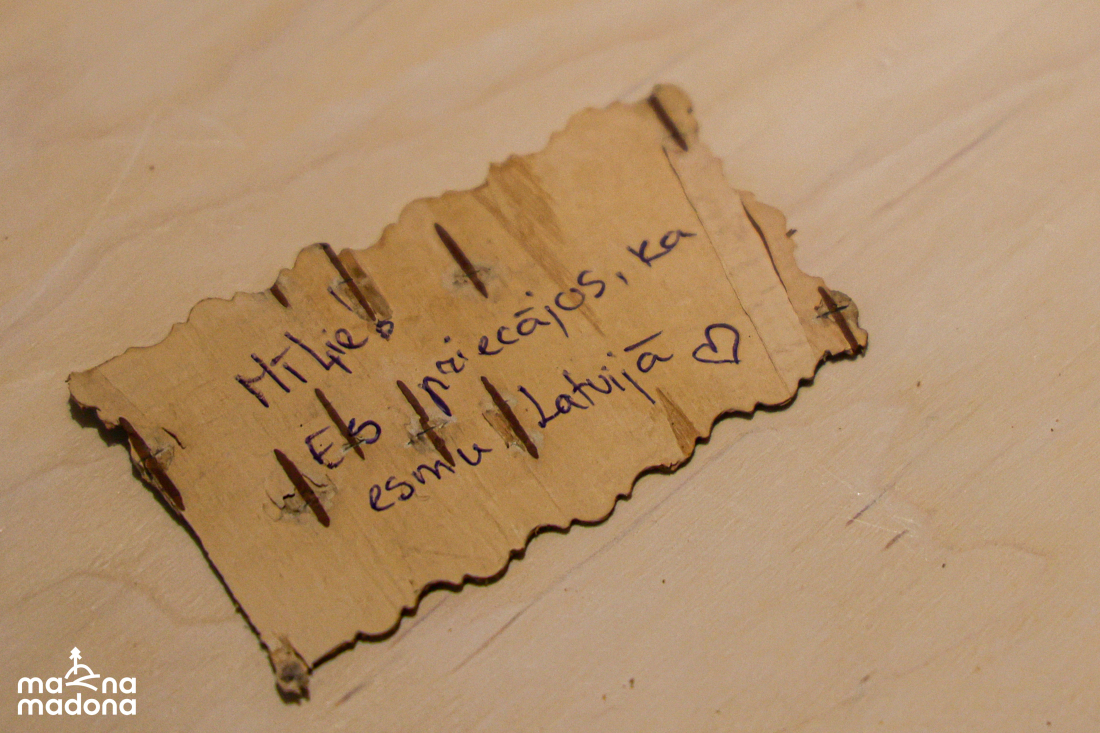 Mīļie!
Es priecājos, ka
esmu Latvijā ♡
mana
madona